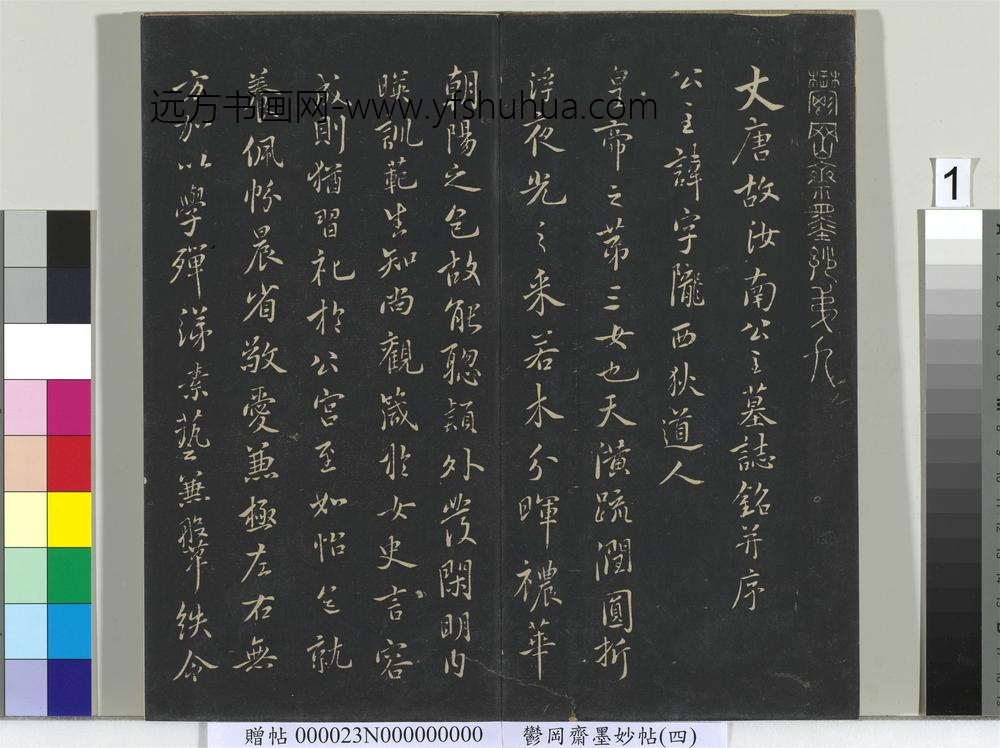 鬱岡齋墨妙第九
大唐故汝南公主墓誌銘并序
公主諱字隴西狄道人
皇帝之第三女也天潢疏潤圓折
浮夜光之采若木分暉襛華
朝陽之色故能聰穎外發閑明內
暎訓範生知尚觀箴於女史言容
成則猶習礼於公宮至如怡色就
養佩帉晨省敬愛兼極左右無
方加以學殫綈素藝兼鞶紩令
远方书画网-www.yfshuhua.com
1
贈帖 000023N000000000 鬱岡齋墨妙帖(四)